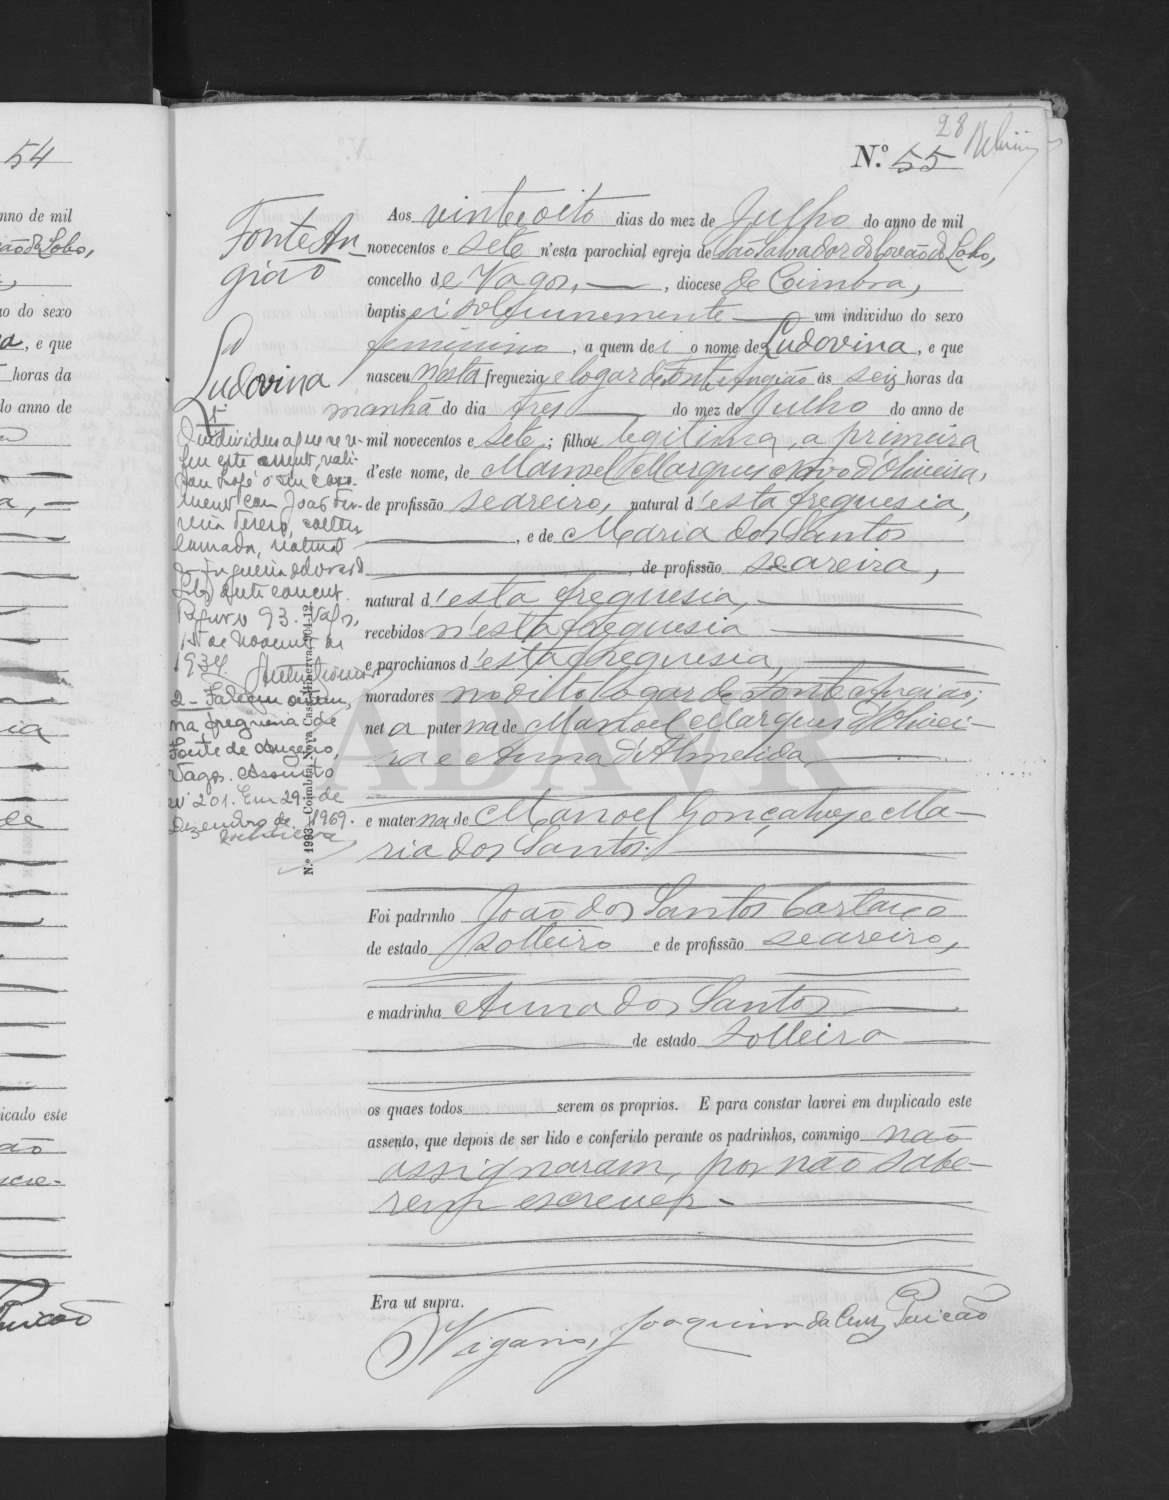 54
nno de mil
ão de Lobo,
o do sexo
a, e que
horas da
do anno de
a,
ia
de
icado este
ão
cre-
Paicão
28
N.º 55
Fonte An
gião
Ludovina
Aos vinte e oito dias do mez de Julho do anno de mil
novecentos e sete n'esta parochial egreja de São Salvador do Covão do Lobo,
concelho de Vagos, diocese de Coimbra,
baptisei solemnemente um individuo do sexo
feminino, a quem dei o nome de Ludovina, e que
nasceu nesta freguezia e logar de Fonte Angião ás seis horas da
manhã do dia tres do mez de Julho do anno de
mil novecentos e sete; filha legitima, a primeira
d'este nome, de Manoel Marques Novo d'Oliveira,
de profissão seareiro, natural d'esta freguesia,
, e de Maria dos Santos
, de profissão seareira,
natural d'esta freguesia,
recebidos n'esta freguesia
e parochianos d'esta freguesia,
moradores no dito logar de Fonte Angião;
neta paterna de Manoel Marques d'Olivei-
ra e Anna d'Almeida,
e materna de Manoel Gonçalves e Ma-
ria dos Santos.
Foi padrinho João dos Santos Cartaxo
de estado solteiro e de profissão seareiro,
e madrinha Anna dos Santos
de estado solteira
os quaes todos serem os proprios. E para constar lavrei em duplicado este
assento, que depois de ser lido e conferido perante os padrinhos, commigo não
assignaram, por não sabe-
rem escrever.
Era ut supra.
O Vigario, Joaquim da Cruz Paicão
1.º
O individuo a que se re-
fere este assento,
casa-
mento com João
natural
da freguesia do Covão do
Lobo
93. Vagos,
15 de Novembro de
1934
2 - Faleceu ontem,
na freguesia de
Fonte de Angeão,
Vagos. Assento
nº 201. Em 29 de
Dezembro de 1969.
N.º 1993—Coimbra, Nova Casa Minerva, 904-12
ADAVR